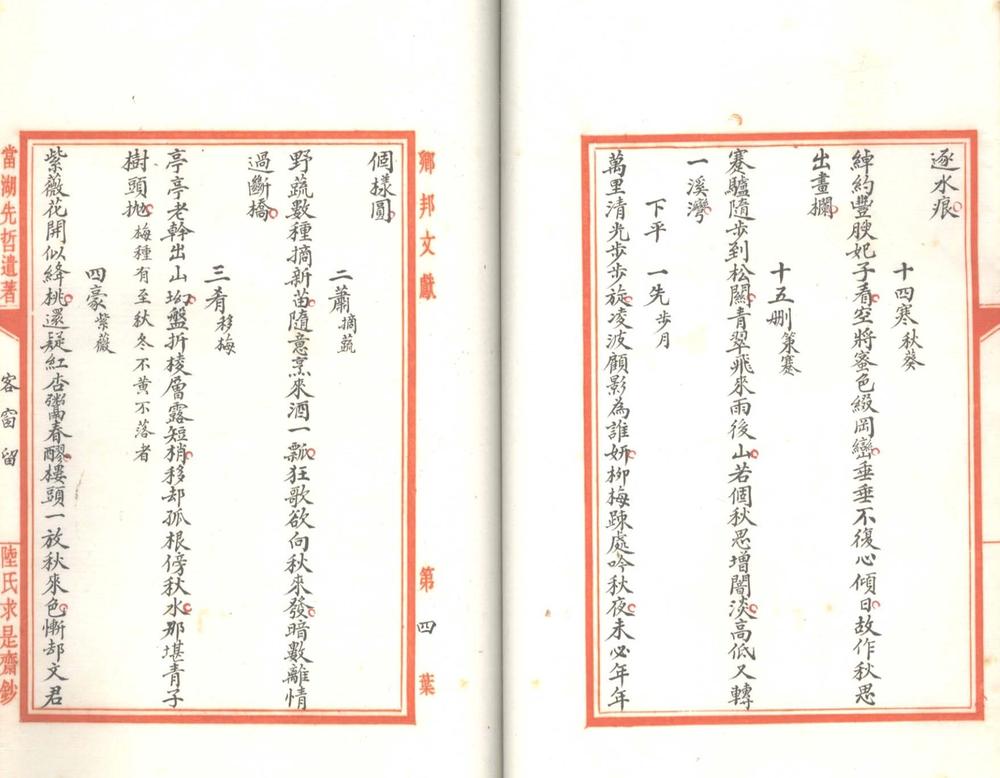 逐水痕
十四寒 秋葵
綽約豐腴妃子看空將蜜色綴岡巒垂垂不復心傾日故作秋思
出畫欄
十五刪 策蹇
蹇驢隨步到松關青翠飛來雨後山若個秋思增闇淡高低又轉
一溪灣
下平 一先 步月
萬里清光步步旋凌波顧影為誰妍柳梅踈處吟秋夜未必年年
鄉邦文獻
第四葉
個樣圓
二蕭 摘蔬
野蔬數種摘新苗隨意烹來酒一瓢狂歌欲向秋來發暗數離情
過斷橋
三肴 移梅
亭亭老幹出山坳盤折稜層露短梢移却孤根傍秋水那堪青子
樹頭拋 梅種有至秋冬不黃不落者
四豪 紫薇
紫薇花開似絳桃還疑紅杏鬻春醪樓頭一放秋來色慚却文君
當湖先哲遺著
客窗留
陸氏求是齋鈔